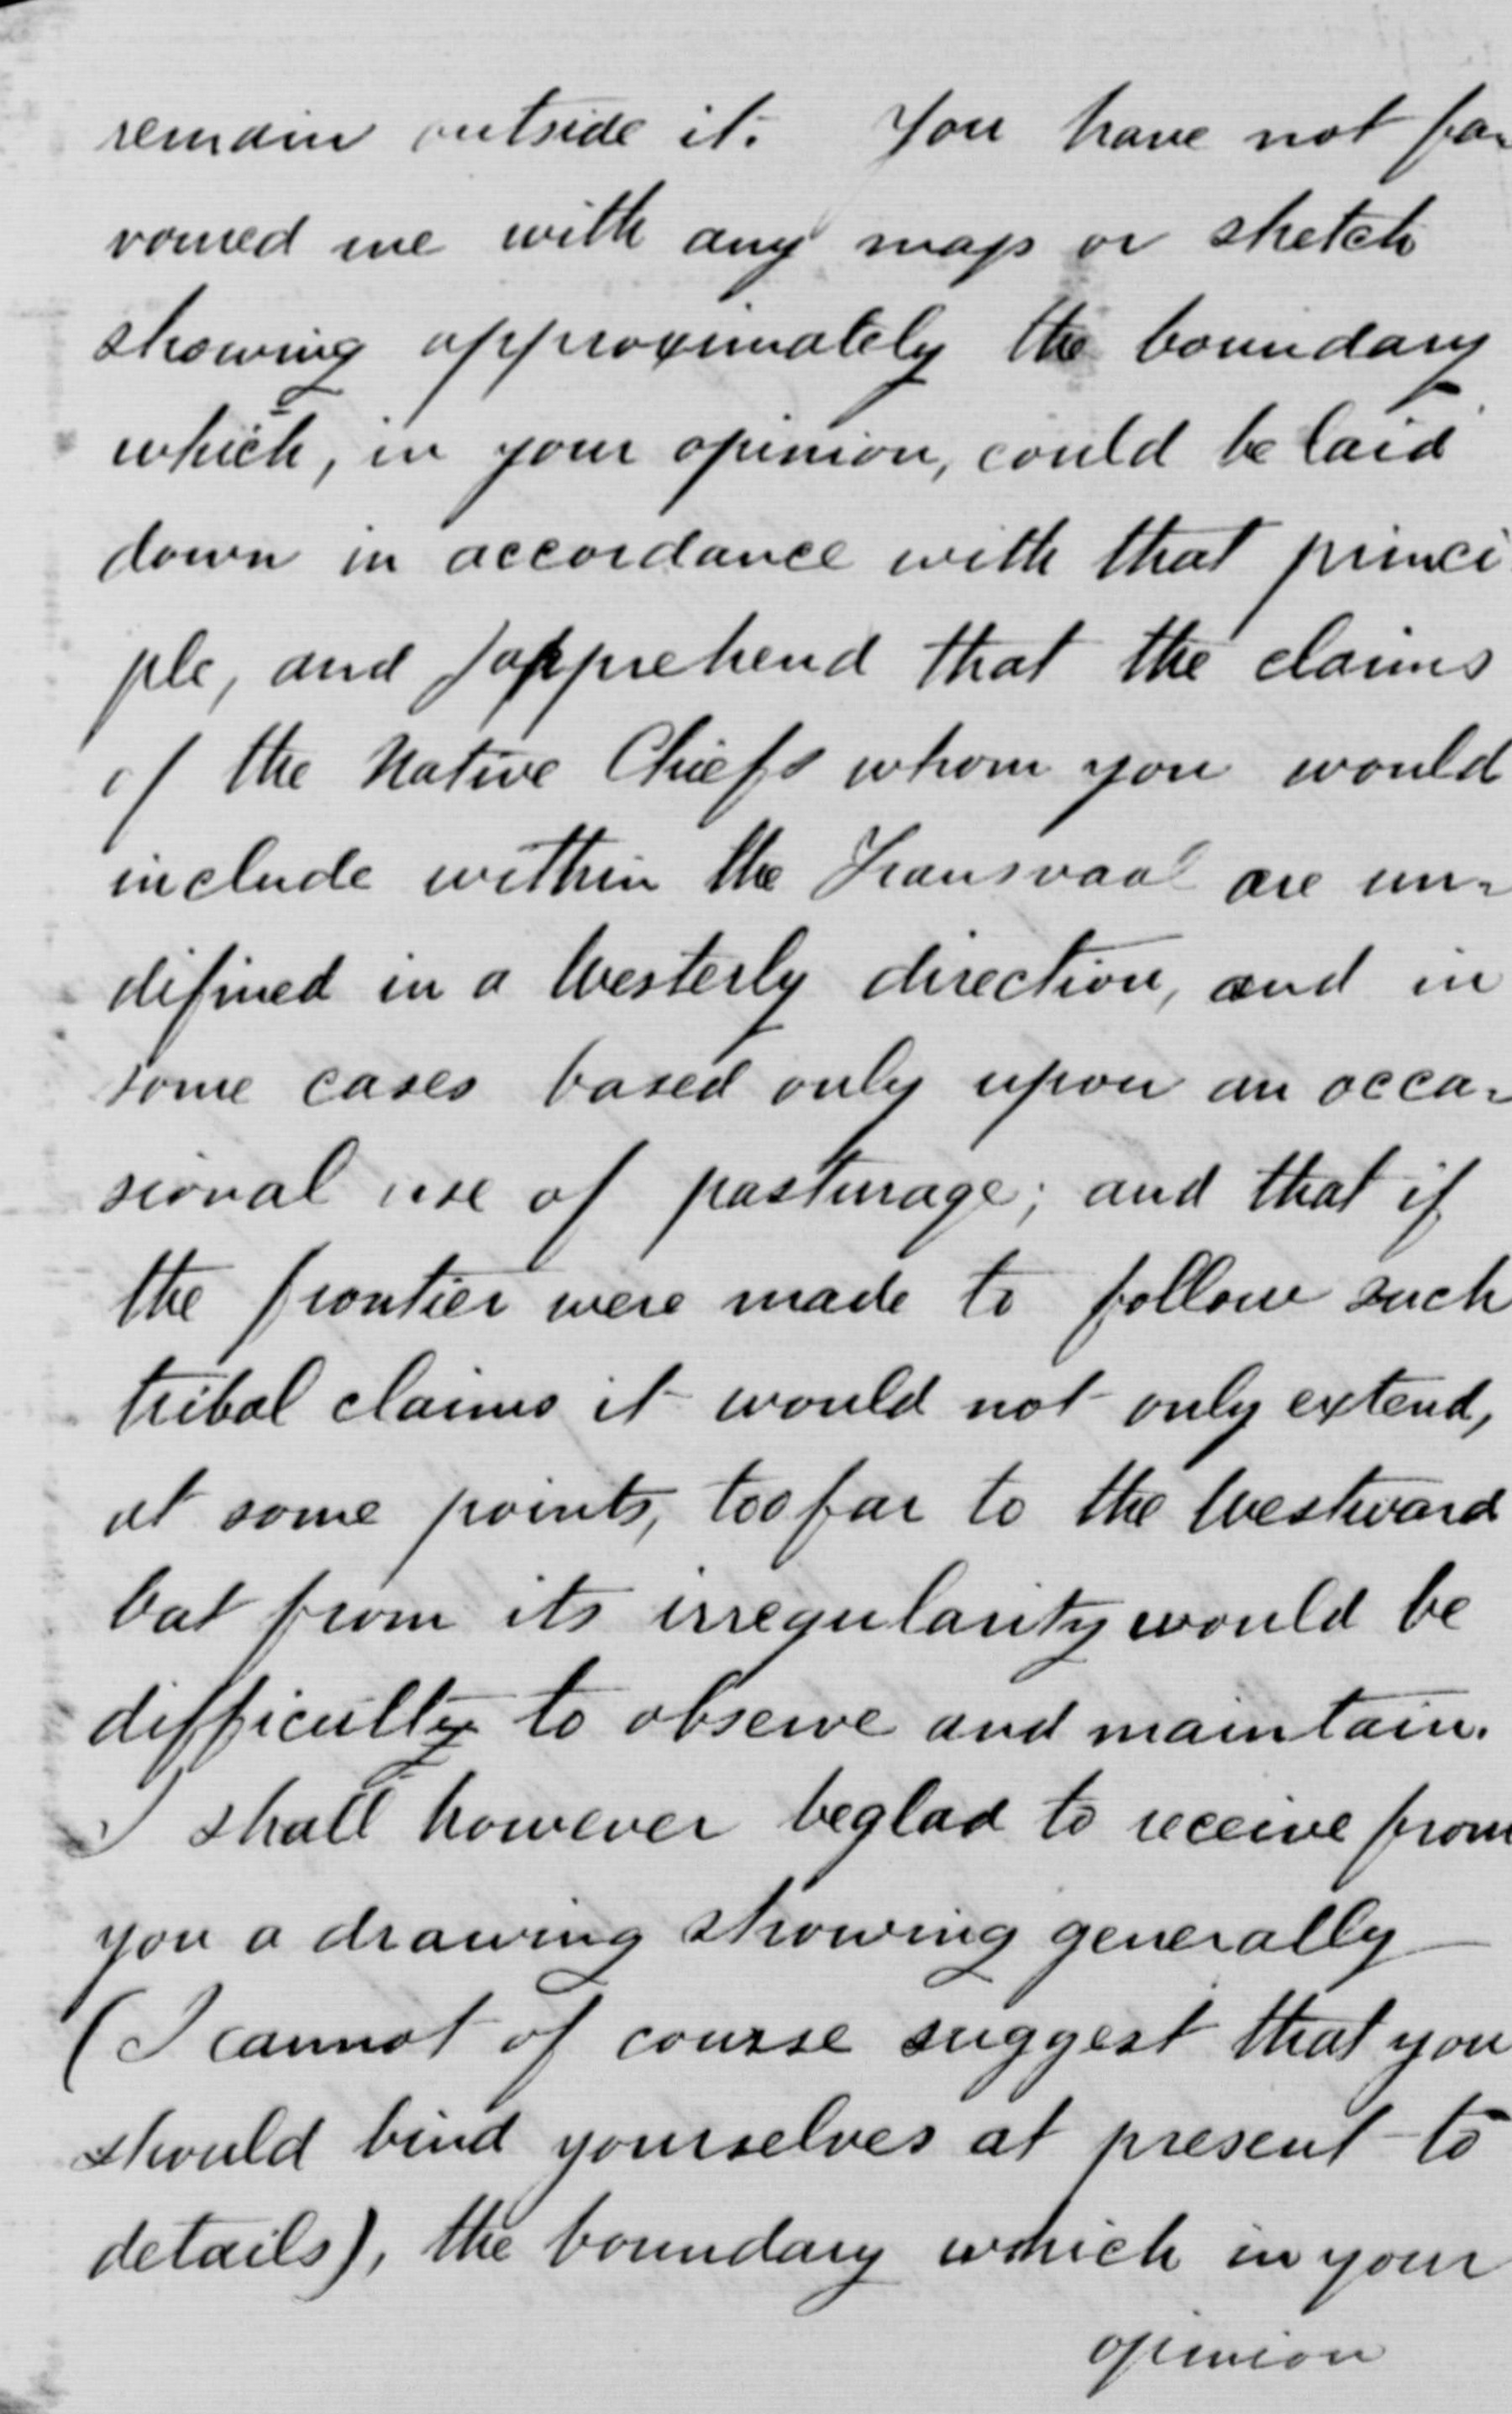 remain outside it. You have not fa-
voured me with any map or sketch
showing approximately the boundary
which, in your opinion, could be laid
down in accordance with that princi
ple, and I apprehend that the claims
of the Native Chiefs whom you would
include within the Transvaal are un-
difined in a Westerly direction, and in
some cases based only upon an occa-
sional use of pasturage; and that if
the frontier were made to follow such
tribal claims it would not only extend,
at some points, too far to the Westward
but from its irregularity would be
difficulty to observe and maintain.
I shall however be glad to receive from
you a drawing showing generally
(I cannot of course suggest that you
should bind yourselves at present to
details), the boundary which in your
opinion